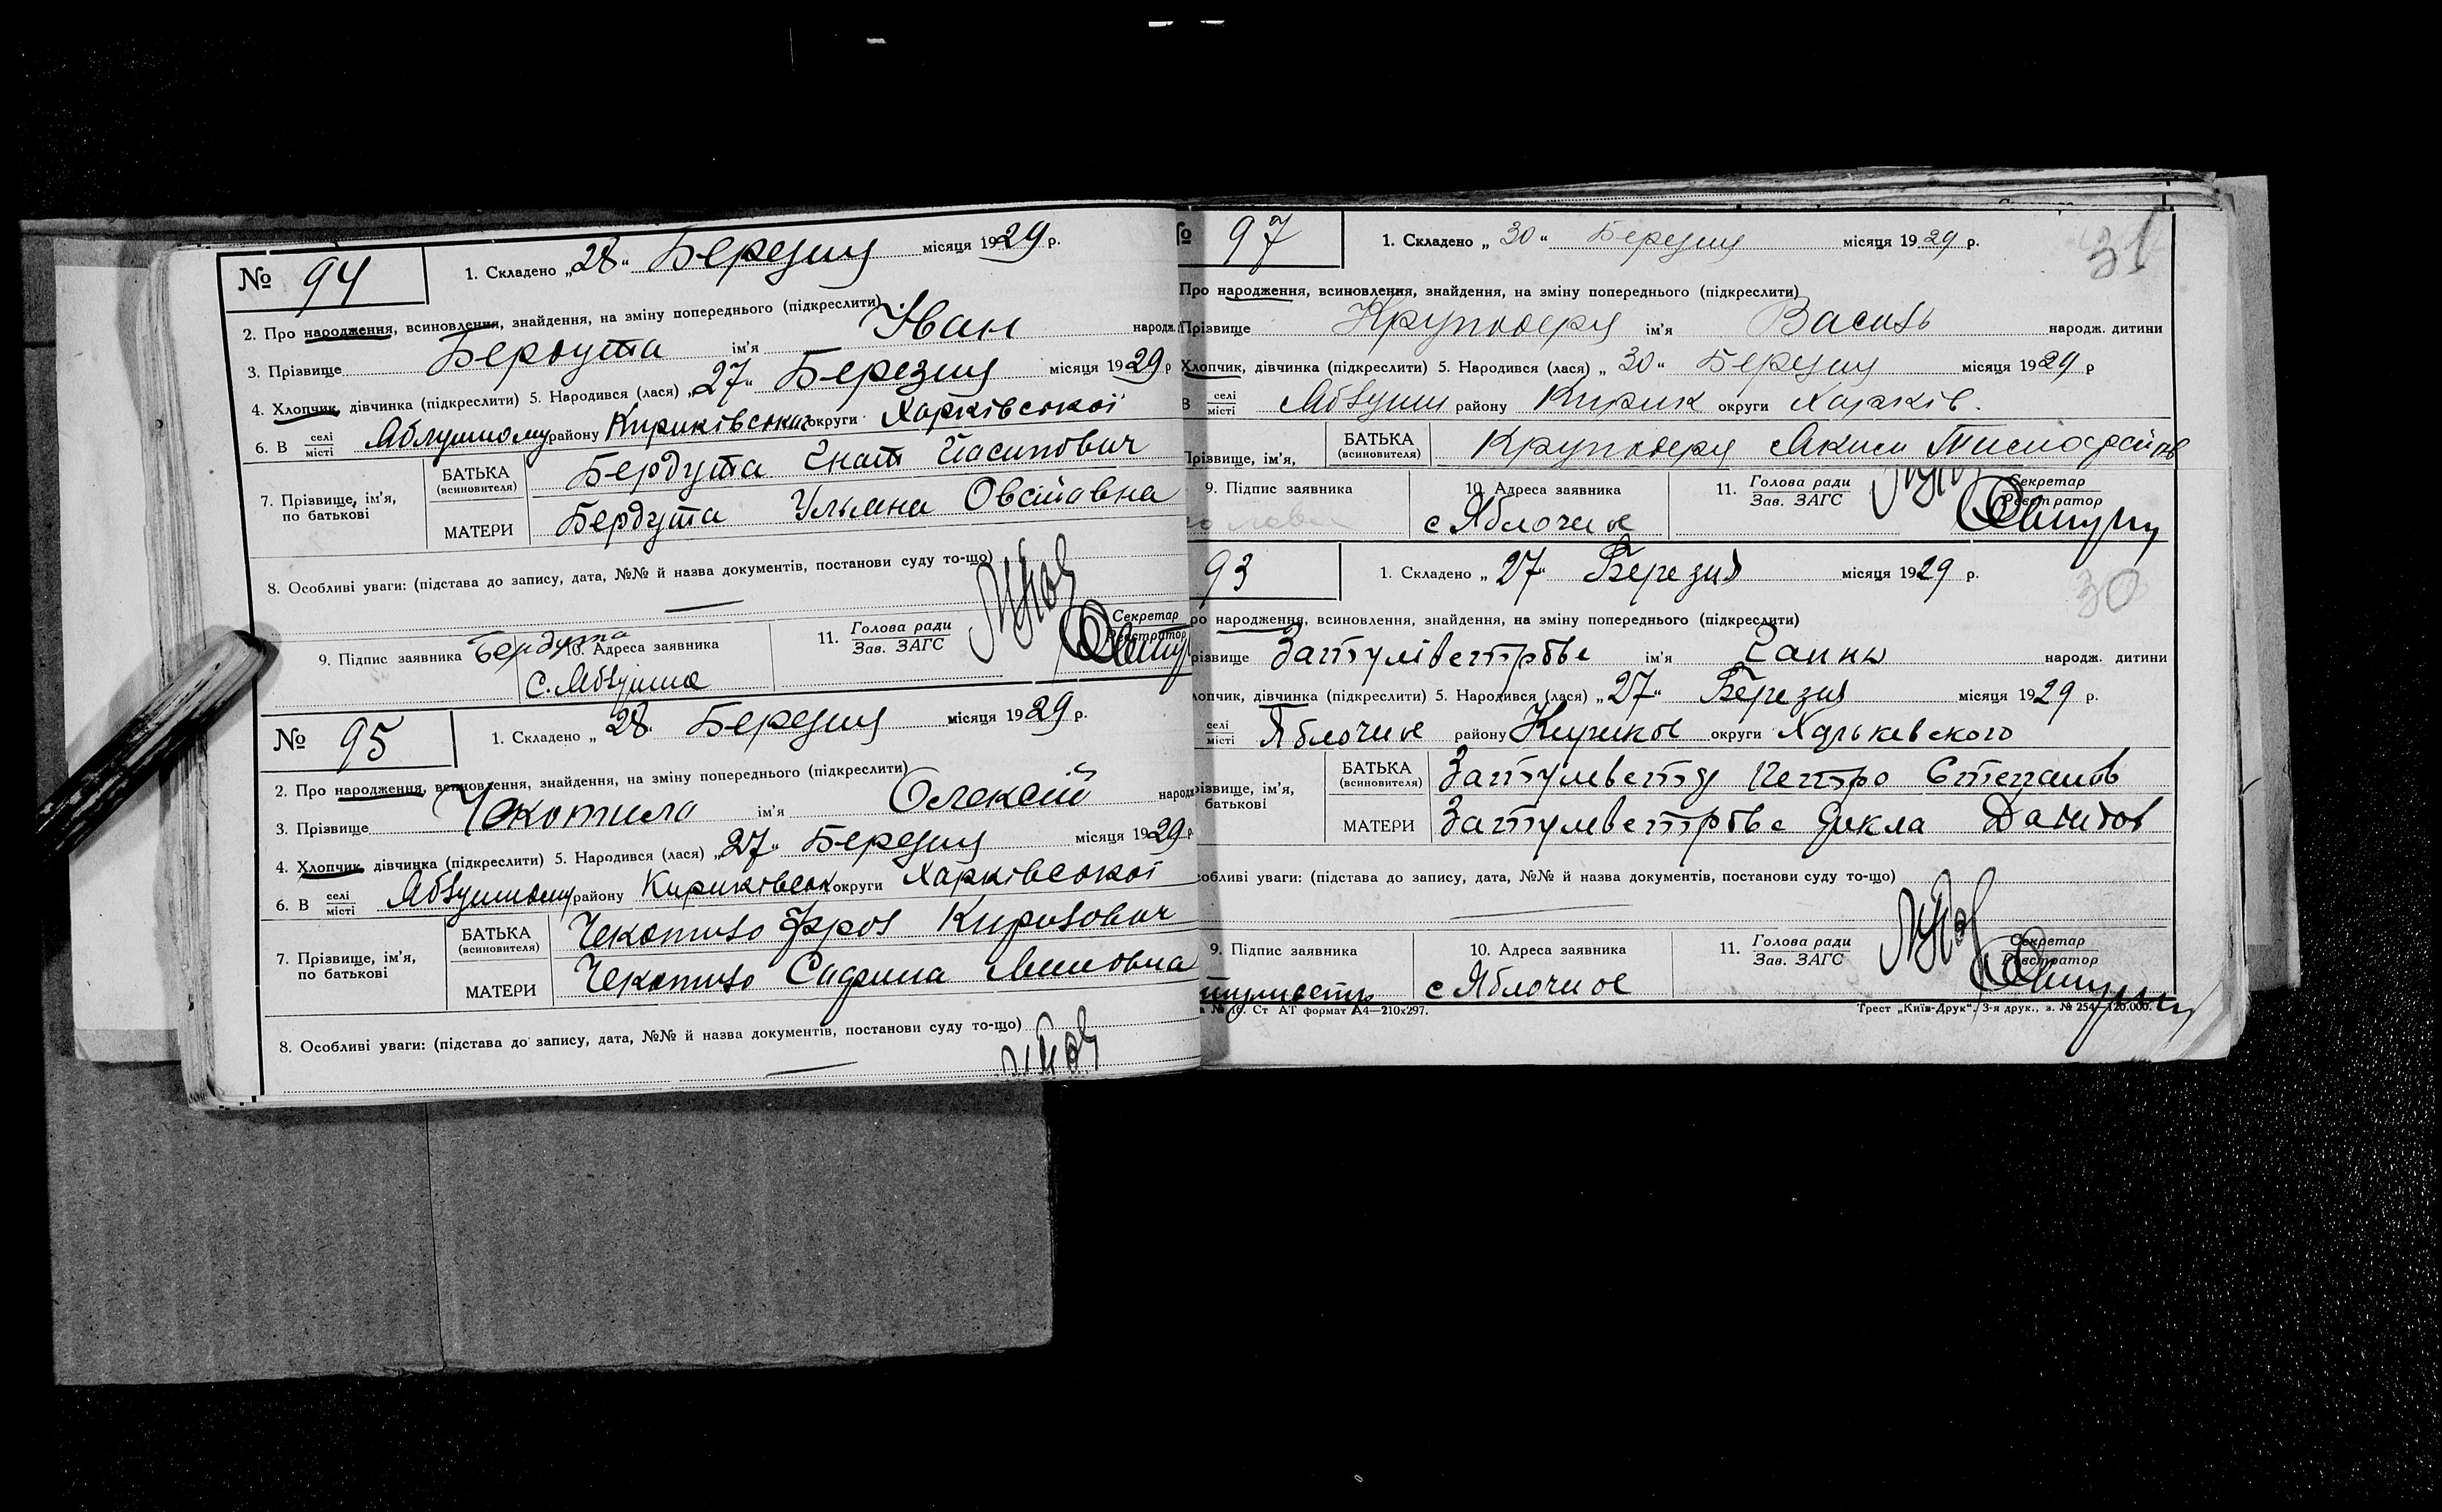 № 94 1. Складено „28“ Березня місяця 1929 р.
2. Про народження, всиновлення, знайдення, на зміну попереднього (підкреслити)
3. Прізвище Бердута ім'я Іван народж.
4. Хлопчик, дівчинка (підкреслити) 5. Народився (лася) „27“ Березня місяця 1929 р
6. В селі місті Яблушному району Кириківської округи Харківської
7. Прізвище, ім'я, по батькові БАТЬКА (всиновителя) Бердута Гнат Йасипович
МАТЕРИ Бердута Ульяна Овставна
8. Особливі уваги: (підстава до запису, дата, №№ й назва документів, постанови суду то-що)
9. Підпис заявника Бердута 10. Адреса заявника 11. Голова ради Зав. ЗАГС Секретар Реєстратор
с. Яблушне
№ 95 1. Складено „28“ Березня місяця 1929 р.
2. Про народження, всиновлення, знайдення, на зміну попереднього (підкреслити)
3. Прізвище Чекотило ім'я Олексій народж
4. Хлопчик, дівчинка (підкреслити) 5. Народився (лася) „27“ Березня місяця 1929 р
6. В селі місті Яблушному району Кириківськ округи Харківської
7. Прізвище, ім'я, по батькові БАТЬКА (всиновителя) Чекотило Фрол Кирилович
МАТЕРИ Чекотило Мииовна
8. Особливі уваги: (підстава до запису, дата, №№ й назва документів, постанови суду то-що)
№ 97 1. Складено „30“ Березня місяця 1929 р.
31
Про народження, всиновлення, знайдення, на зміну попереднього (підкреслити)
Прізвище Круподеря ім'я Василь народж. дитини
Хлопчик, дівчинка (підкреслити) 5. Народився (лася) „30“ Березня місяця 1929 р
В селі місті Яблушн району Кирик округи Харків.
Прізвище, ім'я, БАТЬКА (всиновителя) Круподеря Аким
9. Підпис заявника 10. Адреса заявника 11. Голова ради Зав. ЗАГС Секретар Реєстратор
с Яблочное
93 1. Складено „27“ Березня місяця 1929 р.
30
ро народження, всиновлення, знайдення, на зміну попереднього (підкреслити)
різвище ім'я Ганна народж. дитини
лопчик, дівчинка (підкреслити) 5. Народився (лася) „27“ Березня місяця 1929 р.
селі місті Яблочное району Кириков округи Харьковского
різвище, ім'я, батькові БАТЬКА (всиновителя) Петро Степанов
МАТЕРИ Фекла Давидов
собливі уваги: (підстава до запису, дата, №№ й назва документів, постанови суду то-що)
9. Підпис заявника 10. Адреса заявника 11. Голова ради Зав. ЗАГС Секретар Реєстратор
с Яблочное
№ 16. Ст АТ формат А4—210x297. Трест „Київ-Друк“. 3-я друк., з. № 254—120.000.